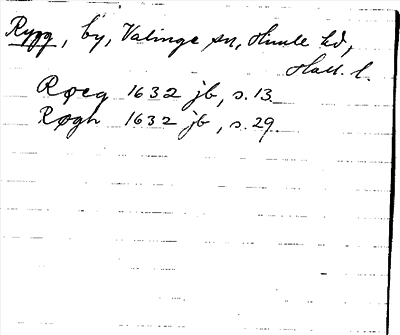 Rygg, by, Valinge sn, Himle hd,
Hall. l.
Røcg 1632 jb, s. 13
Røgh 1632 jb, s. 29.